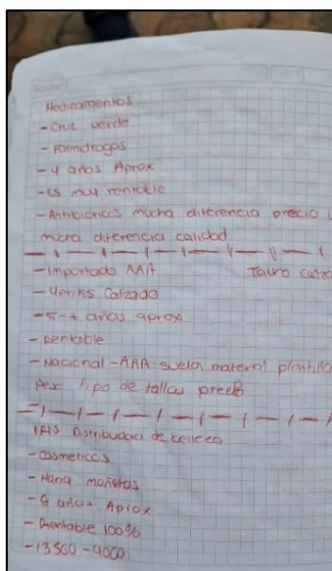 Scribe
Medicamentos
- Cruz verde
- Farmdrogas
- 4 años Aprox
- es muy rentable
- Antibioticos mucha diferencia precio
mucha diferencia calidad
- Importado AAA Tauro Calza
- Yeriks Calzado
- 5-7 años aprox
- Rentable
- Nacional - AAA suela, material plantilla
Peso tipo de tallas precio
IRIS Distribuidora de belleza
- Cosmeticos
- Hana moñotas
- 8 años Aprox
- Rentable 100%
- 13500 - 9000